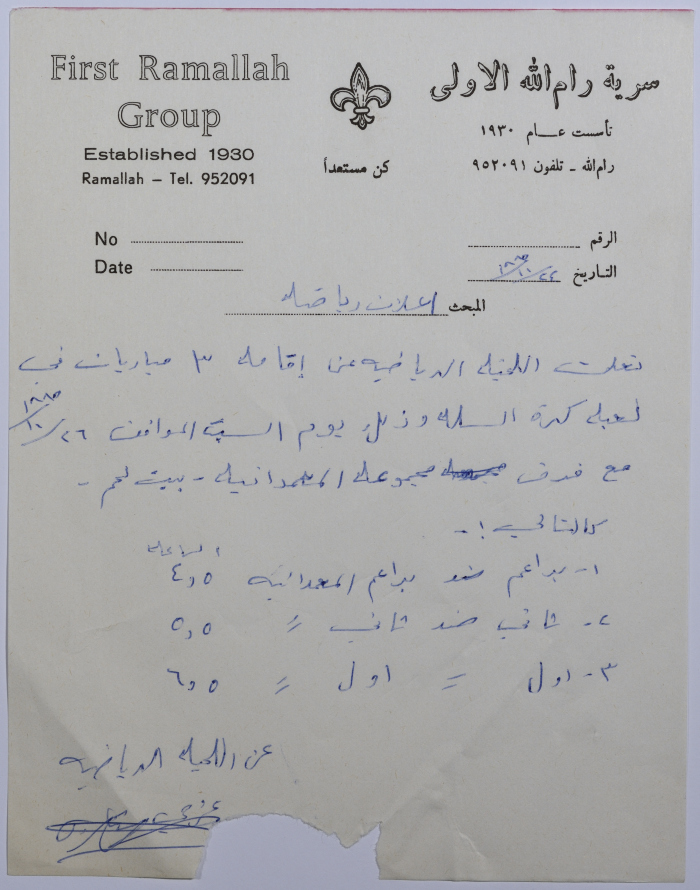 First Ramallah
Group
Established 1930
Ramallah – Tel. 952091
كن مستعداً
سرية رام الله الاولى
تأسست عــام ١٩٣٠
رام الله ـ تلفون ٩٥٢٠٩١
No
Date
الرقم
التاريخ ٢٢/١٠/١٩٨٥
المبحث اعلان رياضي
تعلن اللجنة الرياضية عن إقامة ٣ مباريات في
لعبة كرة السلة وذلك يوم السبت الموافق ٢٦/١٠/١٩٨٥
مع فرق مجموعة المعمدانية - بيت لحم -
كالتالي :-
الساعة
١- براعم ضد براعم المعمدانية ٤,٥
٢- ثاني ضد ثاني = ٥,٥
٣- اول = اول = ٦,٥
عن اللجنة الرياضية